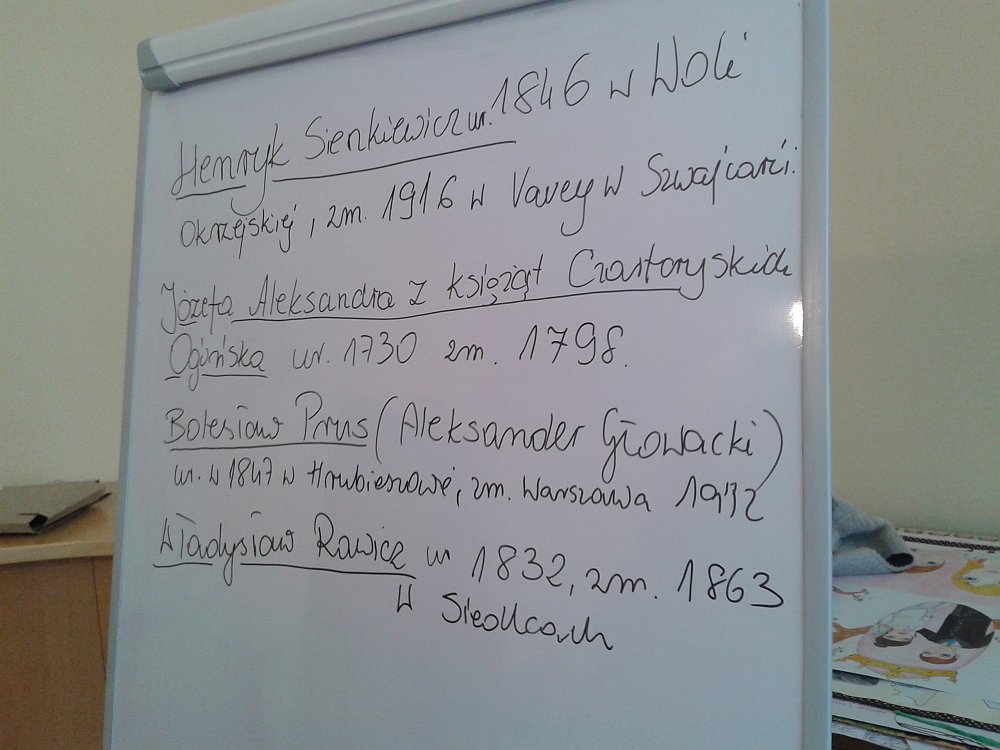 Henryk Sienkiewicz ur. 1846 w Woli
Okrzejskiej, zm. 1916 w Vavey w Szwajcarii.
Józefa Aleksandra z książąt Czartoryskich
Ogińska ur. 1730 zm. 1798.
Bolesław Prus (Aleksander Głowacki)
ur. w 1847 w Hrubieszowie, zm. Warszawa 1912
Władysław Rawicz ur 1832, zm. 1863
w Siedlcach